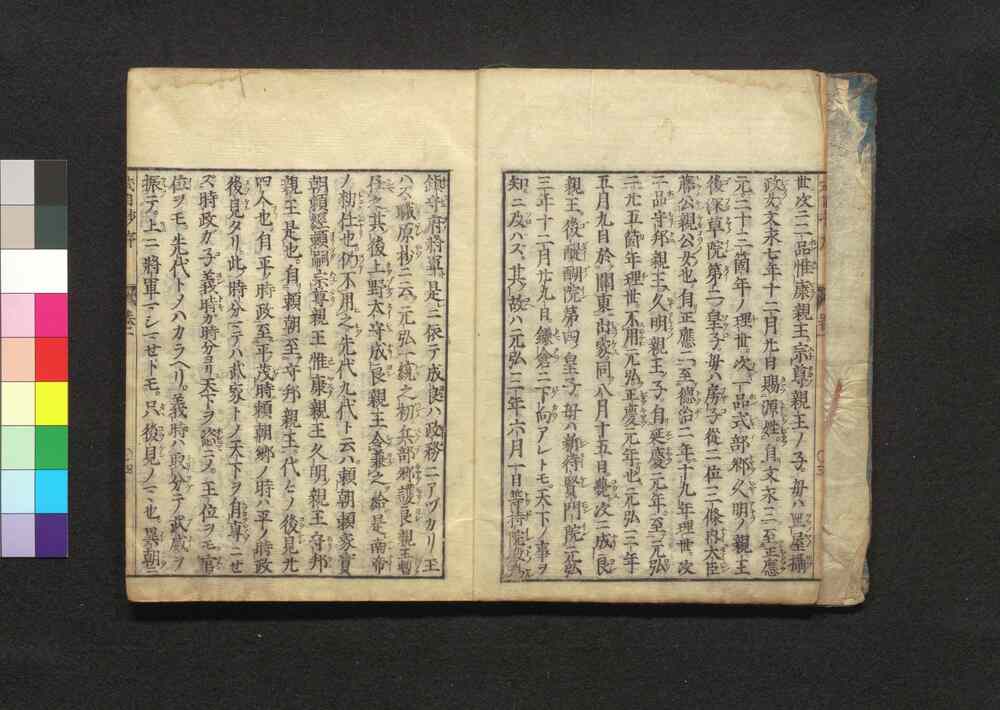 世次ニ二品惟康親王宗尊親王ノ子母ハ
政女文永七年十二月九日賜源姓自文永三至正應
元二十三箇年ノ理世次ニ一品式部卿久明ノ親王
後深草院第二ノ皇子母ハ房子従二位三條内大臣
藤公親公女也自正應二至德治二年十九年理世次
二品守邦親王久明親王ノ子自延慶元年至元弘
三九五箇年理世不用元弘正慶元年也元弘三年
五月九日於關東古蒙同八月十五日薨次ニ成良
親王後醍醐院第四ノ皇子母ハ新待賢門院元弘
三年十二月廿九日鎌倉ニ下向アレトモ天下ノ事ヲ
知ニ及ハス其ノ故ハ元弘三年六月一日等持院
鎮守府将軍是ニ依テ成良ハ政務ニアヅカリ玉
ハス職原抄ニ云元弘一統之初兵部卿護良親王暫
任之其後上野太守成良親王令兼之給是南帝
ノ初任也仍不用之先代九代ト云ハ頼朝頼家實
朝頼經頼嗣宗尊親王惟康親王久明親王守邦
親王是也自頼朝至守邦親王一代ヒノ後見九
四人也自平ノ時政至平ノ高時頼朝卿ノ時平ノ時政
後見タリ此ノ時分ニテハ武家トノ天下ヲ自專ニセ
ズ時政ガ子義時カ時分ヨリ天下ヲ恣ニス王位ヲモ官
位ヲモ先代トノハカラヘリ義時ハ取分テ武威ヲ
振テ上ニ将軍マシマセトモ只後見ノマヽ也異朝ニ